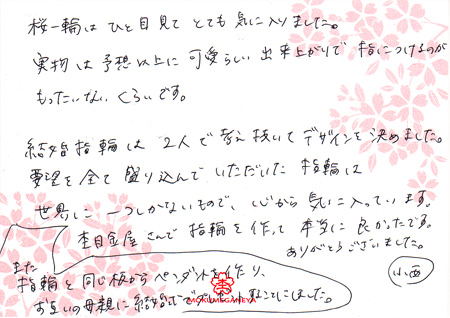 桜一輪は ひと目見て とても気に入りました。
実物は予想以上に可愛らしい出来上がりで 指につけるのが
もったいない くらいです。
結婚指輪は 2人で考え抜いてデザインを決めました。
要望を全て盛り込んでいただいた指輪は
世界に一つしかないもので、心から気に入っています。
杢目金屋さんで指輪を作って 本当に良かったです。
ありがとうございました。
小西
また
指輪と同じ板からペンダントを作り、
お互いの母親に結婚式でプレゼントすることにしました。
MOKUMEGANEYA